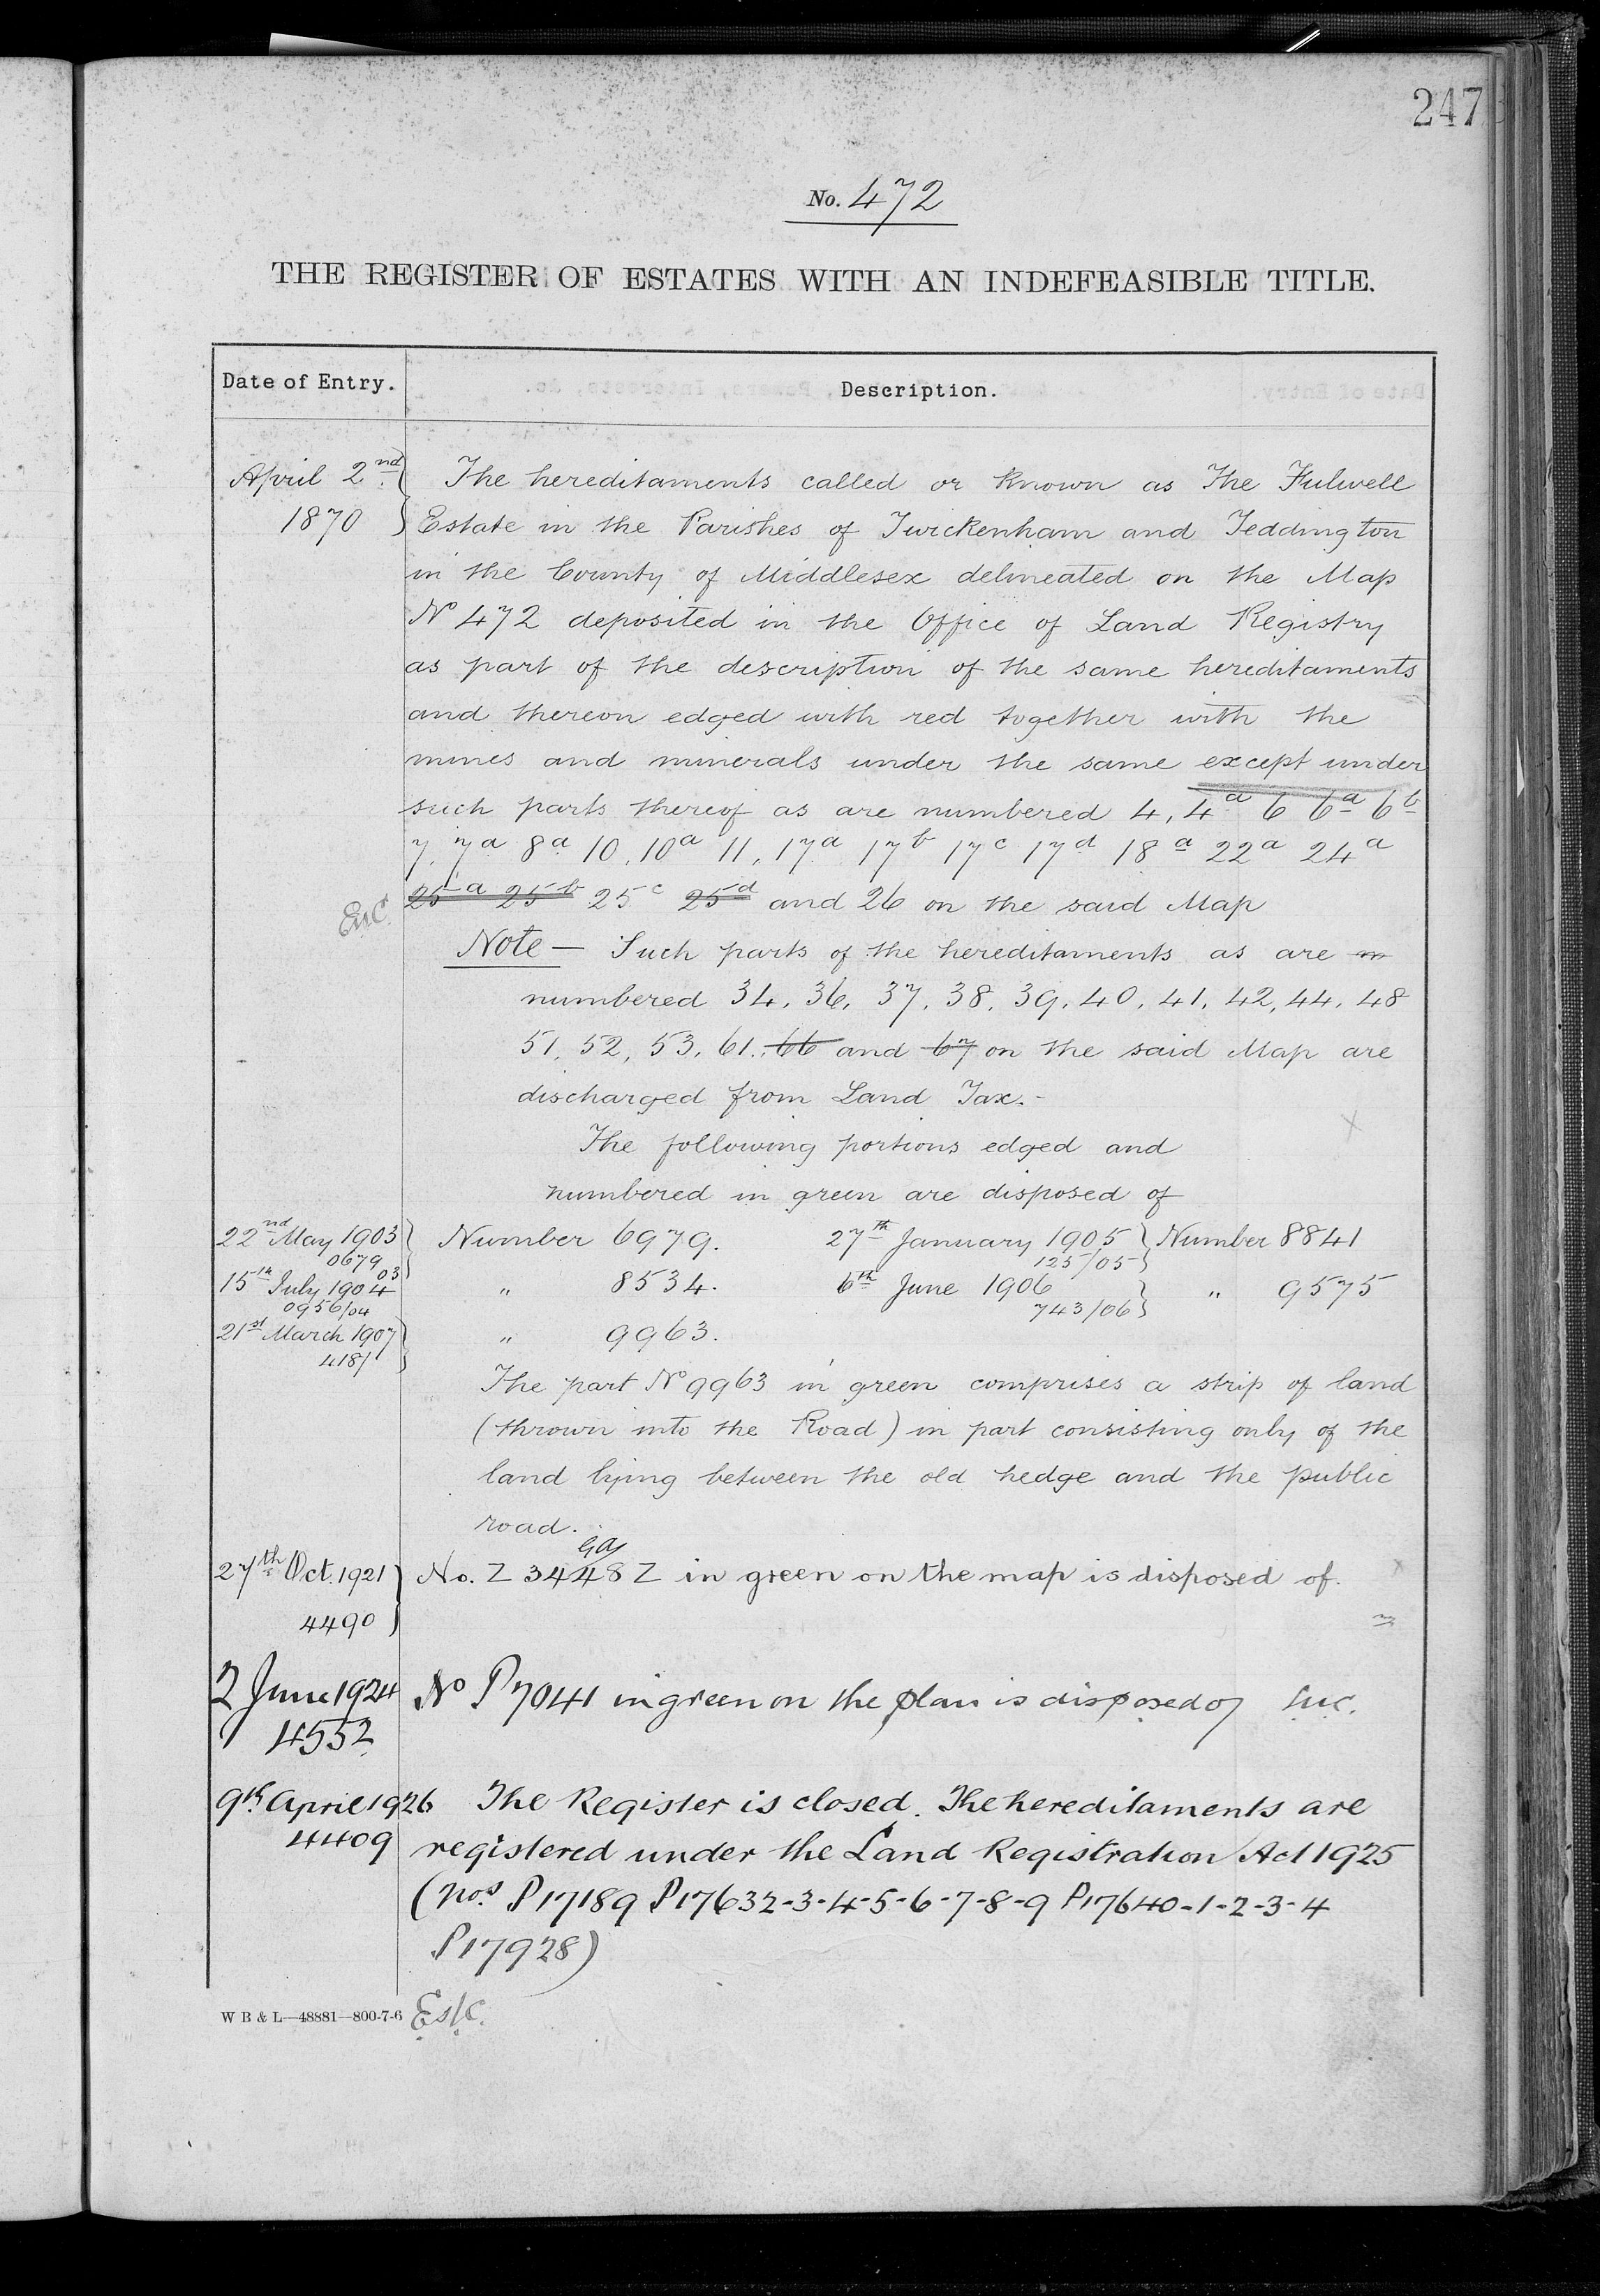 247
No. 472
THE REGISTER OF ESTATES WITH AN INDEFEASIBLE TITLE.
Date of Entry. Description.
April 2nd The hereditaments called or known as The Fulwell
1870 Estate in the Parishes of Twickenham and Teddington
in the County of Middlesex delineated on the Map
No 472 deposited in the Office of Land Registry
as part of the description of the same hereditaments
and thereon edged with red together with the
mines and minerals under the same except under
such parts thereof as are numbered 4, 4a 6 6a 6b
7, 7a 8a 10, 10a 11, 17a 17b 17c 17d 18a 22a 24a
25a 25b 25c 25d and 26 on the said Map
Note — Such parts of the hereditaments as are
numbered 34, 36, 37, 38, 39, 40, 41, 42, 44, 48
51, 52, 53, 61, 66 and 67 on the said Map are
discharged from Land Tax.-
The following portions edged and
numbered in green are disposed of
22nd May 1903 Number 6979. 27th January 1905 Number 8841
0679/03 125/05
15th July 1904 " 8534. 6th June 1906 " 9575
0956/04 743/06
21st March 1907 " 9963.
418/
The part No 9963 in green comprises a strip of land
(thrown into the Road) in part consisting only of the
land lying between the old hedge and the public
road.
27th Oct. 1921 No. Z 3448 Z in green on the map is disposed of.
4490
2 June 1924 No P7041 in green on the plan is disposed of
4552
9th April 1926 The Register is closed. The hereditaments are
4409 registered under the Land Registration Act 1925
(Nos P17189 P17632-3-4-5-6-7-8-9 P17640-1-2-3-4
P17928)
W B & L—48881—800-7-6